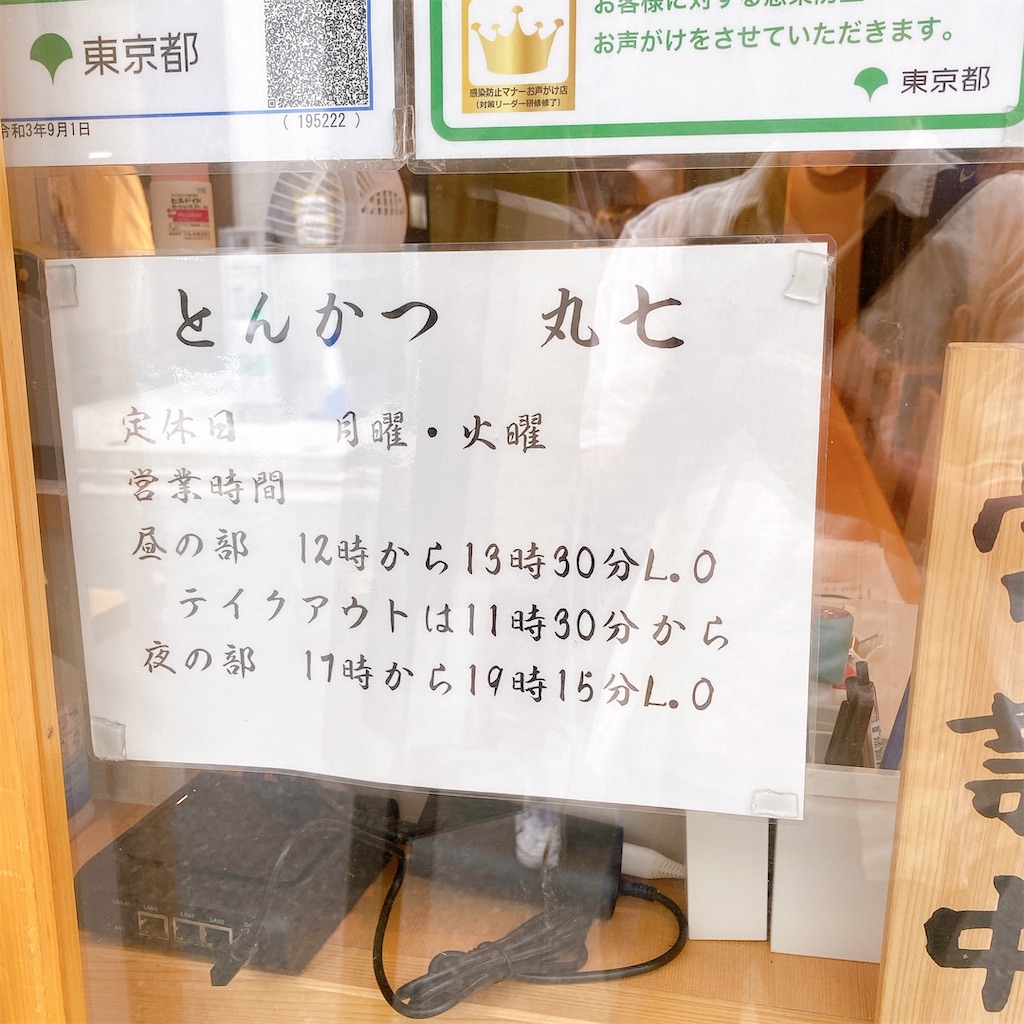 東京都
令和3年9月1日
( 195222 )
お声がけをさせていただきます。
感染防止マナーお声がけ店
(対策リーダー研修修了)
東京都
とんかつ 丸七
定休日 月曜・火曜
営業時間
昼の部 12時から13時30分L.O
テイクアウトは11時30分から
夜の部 17時から19時15分L.O
営業中
LAN1
LAN2